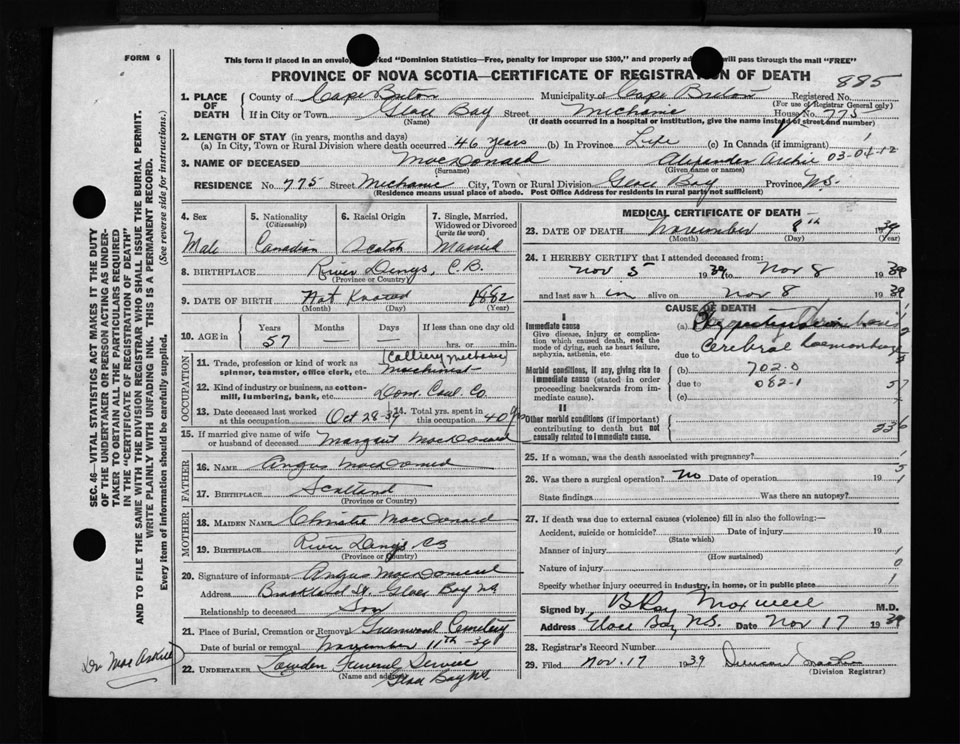 FORM 6
This form if placed in an envelope marked "Dominion Statistics—Free, penalty for improper use $300," and properly addressed will pass through the mail "FREE"
PROVINCE OF NOVA SCOTIA—CERTIFICATE OF REGISTRATION OF DEATH
885
1. PLACE OF DEATH
County of Cape Breton Municipality of Cape Breton Registered No.
(For use of Registrar General only)
If in City or Town Glace Bay Street Mechanic House 775
(Name) (If death occurred in a hospital or institution, give the name instead of street and number)
2. LENGTH OF STAY (in years, months and days)
(a) In City, Town or Rural Division where death occurred 46 years (b) In Province Life (c) In Canada (if immigrant)
3. NAME OF DECEASED MacDonald Alexander Archie 03-04-12
(Surname) (Given name or names)
RESIDENCE No. 775 Street Mechanic City, Town or Rural Division Glace Bay Province N.S.
(Residence means usual place of abode. Post Office Address for residents in rural parts not sufficient)
4. Sex 5. Nationality 6. Racial Origin 7. Single, Married, Widowed or Divorced
(Citizenship) (write the word)
Male Canadian Scotch Married
8. BIRTHPLACE River Denys, C.B.
(Province or Country)
9. DATE OF BIRTH Not Known 1882
(Month) (Day) (Year)
10. AGE in Years Months Days If less than one day old
57 — — hrs. or min.
OCCUPATION
11. Trade, profession or kind of work as spinner, teamster, office clerk, etc. (Colliery Mechanic) Machinist
12. Kind of industry or business, as cotton-mill, lumbering, bank, etc. Dom. Coal Co.
13. Date deceased last worked at this occupation Oct 28-39 14. Total yrs. spent in this occupation 40 yrs
15. If married give name of wife or husband of deceased Margaret MacDonald
FATHER
16. NAME Angus MacDonald
17. BIRTHPLACE Scotland
(Province or Country)
MOTHER
18. MAIDEN NAME Christie MacDonald
19. BIRTHPLACE River Denys CB
(Province or Country)
20. Signature of informant Angus MacDonald
Address Brookland St. Glace Bay NS
Relationship to deceased Son
21. Place of Burial, Cremation or Removal Greenwood Cemetery
Date of burial or removal November 11th - 39
22. UNDERTAKER Funeral Service
(Name and address) Glace Bay NS.
MEDICAL CERTIFICATE OF DEATH
23. DATE OF DEATH November 8th 1939
(Month) (Day) (Year)
24. I HEREBY CERTIFY that I attended deceased from:
Nov 5 1939 to Nov 8 1939
and last saw him alive on Nov 8 1939
CAUSE OF DEATH
I
Immediate cause (a)
Give disease, injury or complication which caused death, not the mode of dying, such as heart failure, asphyxia, asthenia, etc.
due to Cerebral haemorrhage
Morbid conditions, if any, giving rise to immediate cause (stated in order proceeding backwards from immediate cause).
(b) 702-0
due to 082-1
(c) 57
II
Other morbid conditions (if important) contributing to death but not causally related to immediate cause. 236
25. If a woman, was the death associated with pregnancy?
26. Was there a surgical operation? No Date of operation 19
State findings Was there an autopsy?
27. If death was due to external causes (violence) fill in also the following:—
Accident, suicide or homicide? Date of injury 19
(State which)
Manner of injury
(How sustained)
Nature of injury
Specify whether injury occurred in industry, in home, or in public place
Signed by B Roy Maxwell M.D.
Address Glace Bay N.S. Date Nov 17 1939
28. Registrar's Record Number
29. Filed Nov. 17 1939 Duncan
(Division Registrar)
SEC. 46—VITAL STATISTICS ACT MAKES IT THE DUTY
OF THE UNDERTAKER OR PERSON ACTING AS UNDERTAKER TO OBTAIN ALL THE PARTICULARS REQUIRED
IN THE "CERTIFICATE OF REGISTRATION OF DEATH"
AND TO FILE THE SAME WITH THE DIVISION REGISTRAR WHO SHALL ISSUE THE BURIAL PERMIT.
WRITE PLAINLY WITH UNFADING INK. THIS IS A PERMANENT RECORD.
Every item of information should be carefully supplied. (See reverse side for instructions.)
Dr MacAskill